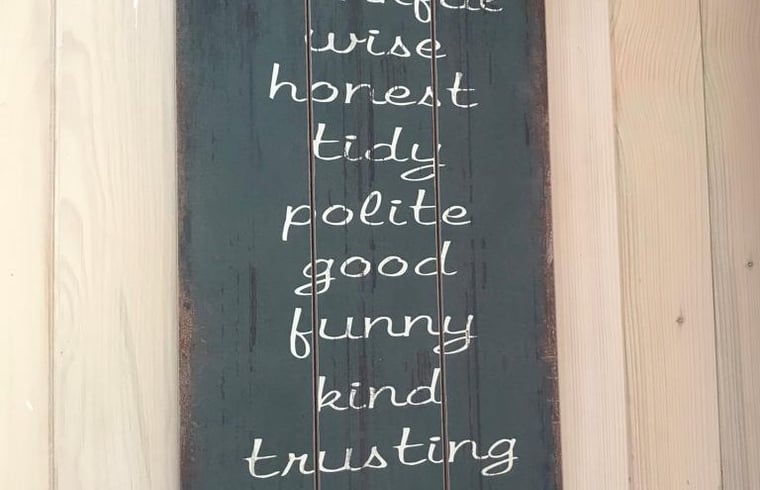 wise
honest
tidy
polite
good
funny
kind
trusting